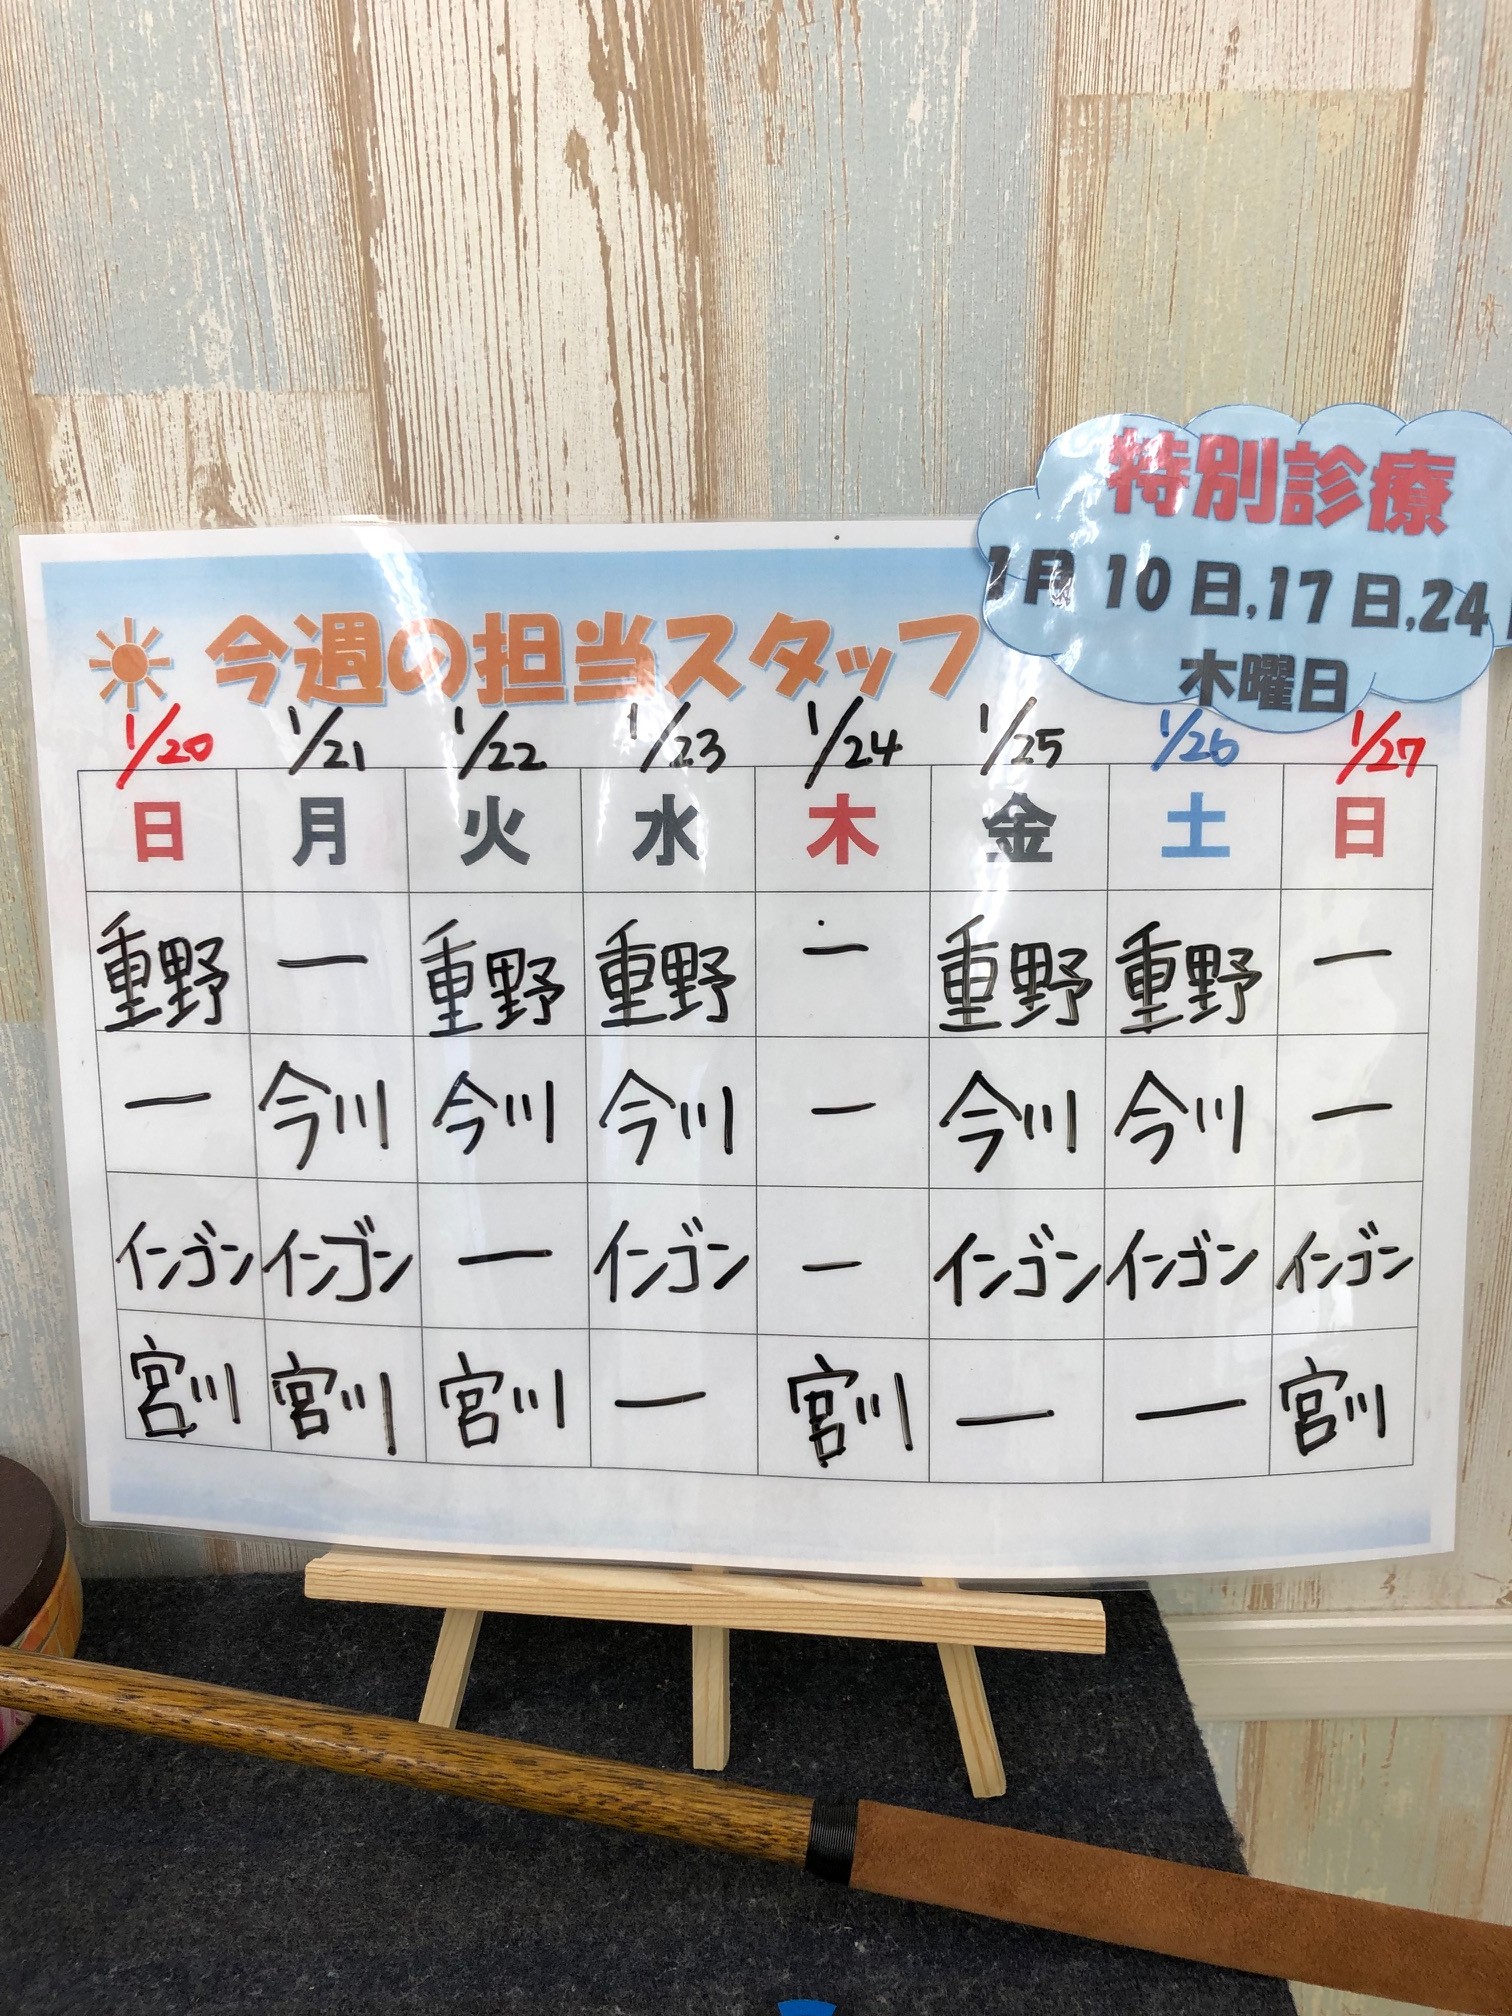 特別診療
1月 10日,17日,24
木曜日
今週の担当スタッフ
1/20 1/21 1/22 1/23 1/24 1/25 1/26 1/27
日 月 火 水 木 金 土 日
重野 ー 重野 重野 ー 重野 重野 ー
ー 今川 今川 今川 ー 今川 今川 ー
インゴン インゴン ー インゴン ー インゴン インゴン インゴン
宮川 宮川 宮川 ー 宮川 ー ー 宮川